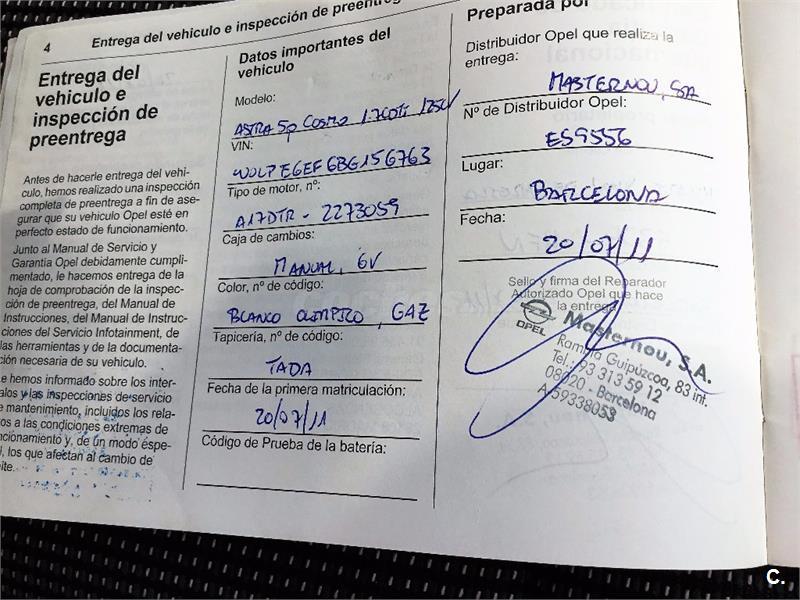 4
Entrega del vehiculo e inspección de preentrega
Entrega del
vehiculo e
inspección de
preentrega
Antes de hacerle entrega del vehi-
culo, hemos realizado una inspección
completa de preentrega a fin de ase-
gurar que su vehiculo Opel esté en
perfecto estado de funcionamiento.
Junto al Manual de Servicio y
Garantia Opel debidamente cumpli-
mentado, le hacemos entrega de la
hoja de comprobación de la inspec-
ción de preentrega, del Manual de
Instrucciones, del Manual de Instruc-
ciones del Servicio Infotainment, de
las herramientas y de la documenta-
ción necesaria de su vehiculo.
e hemos informado sobre los inter-
alos y las inspecciones de servicio
e mantenimiento, incluidos los rela-
os a las condiciones extremas de
ncionamiento y, de un modo espe-
l, los que afectan al cambio de
ite.
Datos importantes del
vehiculo
Modelo:
ASTRA 5p COSMO 1.7CDTI 125CV
VIN:
WOLPE6EF6BG156763
Tipo de motor, nº:
A17DTR - 2273059
Caja de cambios:
MANUAL, 6V
Color, nº de código:
BLANCO OLIMPICO, GAZ
Tapicería, nº de código:
TADA
Fecha de la primera matriculación:
20/07/11
Código de Prueba de la batería:
Preparada por
Distribuidor Opel que realiza la
entrega:
MASTERNOU, SA
Nº de Distribuidor Opel:
ES9556
Lugar:
BARCELONA
Fecha:
20/07/11
Sello y firma del Reparador
Autorizado Opel que hace
la entrega
OPEL
Masternou, S.A.
Rambla Guipúzcoa, 83 int.
Tel.: 93 313 59 12
08020 - Barcelona
A-59338053
C.